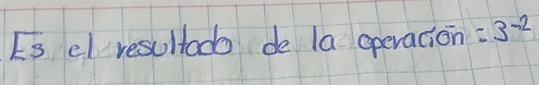 Es el resultado de la operación = 3⁻²